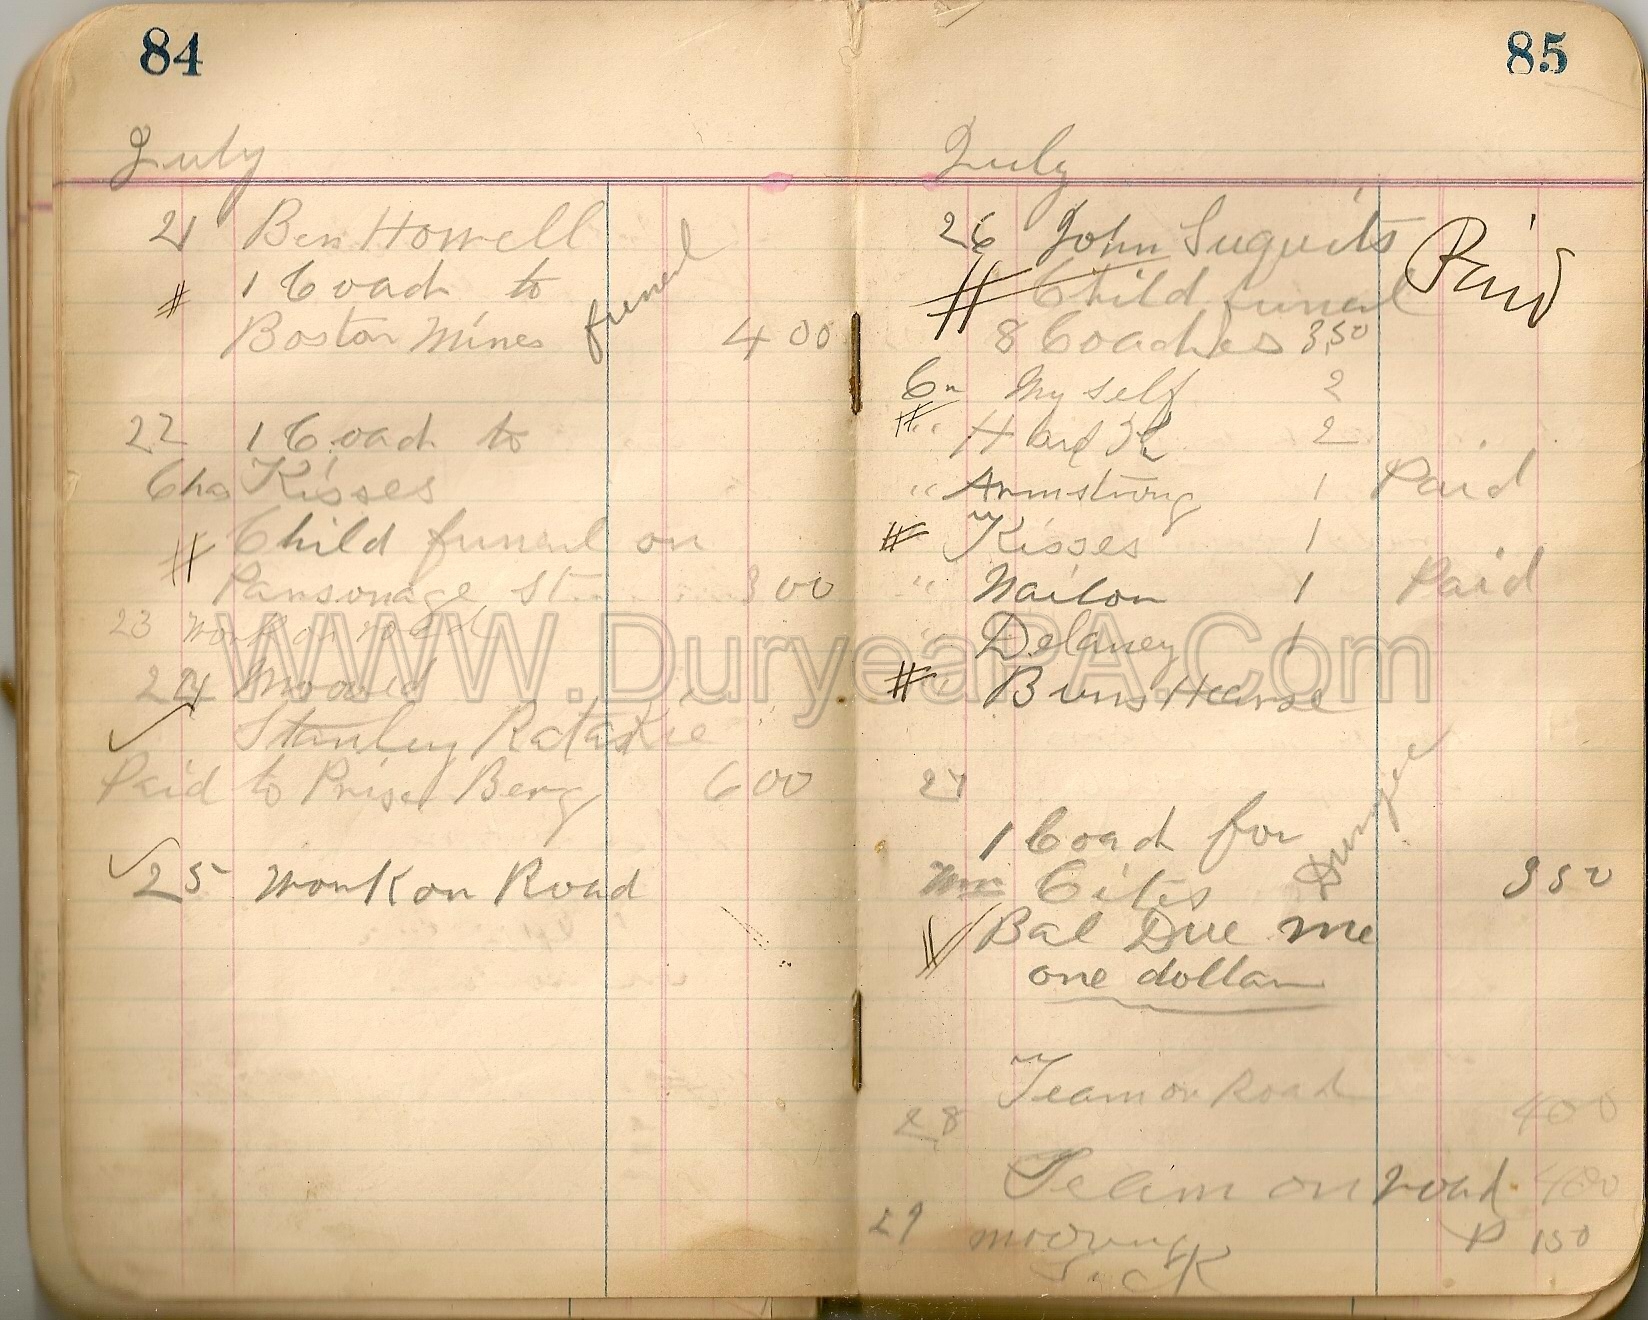 84
July
21 Ben Howell
# 1 Coach to
Boston Mines funeral 4 00
22 1 Coach to
Chas Kisses
# Child funeral on
Parsonage St 3 00
23 Work on road
24 Mooved
Stanley
Paid to Prise Berg 6 00
25 Work on Road
85
July
26 John Suquits Paid
# Child funeral
8 Coaches 3,50
Myself 2
# " 2
" Armstrong 1 Paid
# Kisses 1
" Nailon 1 Paid
" Delaney 1
# " Burns Hearse
27
1 Coach for
Cites 3 50
Bal Due me
one dollar
Team on Road 400
28
Team on road 400
29 mooving P 150
WWW.DuryeaPA.Com